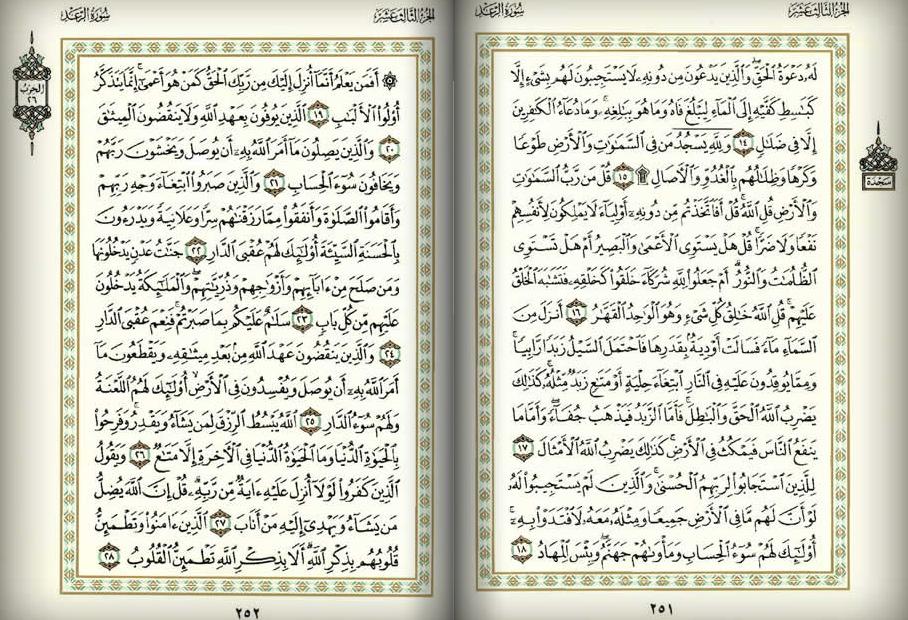 الجزء الثالث عشر
سورة الرعد
لَهُۥ دَعْوَةُ ٱلْحَقِّ ۖ وَٱلَّذِينَ يَدْعُونَ مِن دُونِهِۦ لَا يَسْتَجِيبُونَ لَهُم بِشَىْءٍ إِلَّا
كَبَٰسِطِ كَفَّيْهِ إِلَى ٱلْمَآءِ لِيَبْلُغَ فَاهُ وَمَا هُوَ بِبَٰلِغِهِۦ ۚ وَمَا دُعَآءُ ٱلْكَٰفِرِينَ
إِلَّا فِى ضَلَٰلٍ ١٤ وَلِلَّهِ يَسْجُدُ مَن فِى ٱلسَّمَٰوَٰتِ وَٱلْأَرْضِ طَوْعًا
وَكَرْهًا وَظِلَٰلُهُم بِٱلْغُدُوِّ وَٱلْأٓصَالِ ۩ ١٥ قُلْ مَن رَّبُّ ٱلسَّمَٰوَٰتِ
وَٱلْأَرْضِ قُلِ ٱللَّهُ ۚ قُلْ أَفَٱتَّخَذْتُم مِّن دُونِهِۦٓ أَوْلِيَآءَ لَا يَمْلِكُونَ لِأَنفُسِهِمْ
نَفْعًا وَلَا ضَرًّا ۚ قُلْ هَلْ يَسْتَوِى ٱلْأَعْمَىٰ وَٱلْبَصِيرُ أَمْ هَلْ تَسْتَوِى
ٱلظُّلُمَٰتُ وَٱلنُّورُ ۗ أَمْ جَعَلُوا۟ لِلَّهِ شُرَكَآءَ خَلَقُوا۟ كَخَلْقِهِۦ فَتَشَٰبَهَ ٱلْخَلْقُ
عَلَيْهِمْ ۚ قُلِ ٱللَّهُ خَٰلِقُ كُلِّ شَىْءٍ وَهُوَ ٱلْوَٰحِدُ ٱلْقَهَّٰرُ ١٦ أَنزَلَ مِنَ
ٱلسَّمَآءِ مَآءً فَسَالَتْ أَوْدِيَةٌۢ بِقَدَرِهَا فَٱحْتَمَلَ ٱلسَّيْلُ زَبَدًا رَّابِيًا ۚ
وَمِمَّا يُوقِدُونَ عَلَيْهِ فِى ٱلنَّارِ ٱبْتِغَآءَ حِلْيَةٍ أَوْ مَتَٰعٍ زَبَدٌ مِّثْلُهُۥ ۚ كَذَٰلِكَ
يَضْرِبُ ٱللَّهُ ٱلْحَقَّ وَٱلْبَٰطِلَ ۚ فَأَمَّا ٱلزَّبَدُ فَيَذْهَبُ جُفَآءً ۖ وَأَمَّا مَا
يَنفَعُ ٱلنَّاسَ فَيَمْكُثُ فِى ٱلْأَرْضِ ۚ كَذَٰلِكَ يَضْرِبُ ٱللَّهُ ٱلْأَمْثَالَ ١٧
لِلَّذِينَ ٱسْتَجَابُوا۟ لِرَبِّهِمُ ٱلْحُسْنَىٰ ۚ وَٱلَّذِينَ لَمْ يَسْتَجِيبُوا۟ لَهُۥ
لَوْ أَنَّ لَهُم مَّا فِى ٱلْأَرْضِ جَمِيعًا وَمِثْلَهُۥ مَعَهُۥ لَٱفْتَدَوْا۟ بِهِۦٓ ۚ
أُو۟لَٰٓئِكَ لَهُمْ سُوٓءُ ٱلْحِسَابِ وَمَأْوَىٰهُمْ جَهَنَّمُ ۖ وَبِئْسَ ٱلْمِهَادُ ١٨
سجدة
٢٥١
الجزء الثالث عشر
سورة الرعد
۞ أَفَمَن يَعْلَمُ أَنَّمَآ أُنزِلَ إِلَيْكَ مِن رَّبِّكَ ٱلْحَقُّ كَمَنْ هُوَ أَعْمَىٰٓ ۚ إِنَّمَا يَتَذَكَّرُ
أُو۟لُوا۟ ٱلْأَلْبَٰبِ ١٩ ٱلَّذِينَ يُوفُونَ بِعَهْدِ ٱللَّهِ وَلَا يَنقُضُونَ ٱلْمِيثَٰقَ
٢٠ وَٱلَّذِينَ يَصِلُونَ مَآ أَمَرَ ٱللَّهُ بِهِۦٓ أَن يُوصَلَ وَيَخْشَوْنَ رَبَّهُمْ
وَيَخَافُونَ سُوٓءَ ٱلْحِسَابِ ٢١ وَٱلَّذِينَ صَبَرُوا۟ ٱبْتِغَآءَ وَجْهِ رَبِّهِمْ
وَأَقَامُوا۟ ٱلصَّلَوٰةَ وَأَنفَقُوا۟ مِمَّا رَزَقْنَٰهُمْ سِرًّا وَعَلَانِيَةً وَيَدْرَءُونَ
بِٱلْحَسَنَةِ ٱلسَّيِّئَةَ أُو۟لَٰٓئِكَ لَهُمْ عُقْبَى ٱلدَّارِ ٢٢ جَنَّٰتُ عَدْنٍ يَدْخُلُونَهَا
وَمَن صَلَحَ مِنْ ءَابَآئِهِمْ وَأَزْوَٰجِهِمْ وَذُرِّيَّٰتِهِمْ ۖ وَٱلْمَلَٰٓئِكَةُ يَدْخُلُونَ
عَلَيْهِم مِّن كُلِّ بَابٍ ٢٣ سَلَٰمٌ عَلَيْكُم بِمَا صَبَرْتُمْ ۚ فَنِعْمَ عُقْبَى ٱلدَّارِ
٢٤ وَٱلَّذِينَ يَنقُضُونَ عَهْدَ ٱللَّهِ مِنۢ بَعْدِ مِيثَٰقِهِۦ وَيَقْطَعُونَ مَآ
أَمَرَ ٱللَّهُ بِهِۦٓ أَن يُوصَلَ وَيُفْسِدُونَ فِى ٱلْأَرْضِ ۙ أُو۟لَٰٓئِكَ لَهُمُ ٱللَّعْنَةُ
وَلَهُمْ سُوٓءُ ٱلدَّارِ ٢٥ ٱللَّهُ يَبْسُطُ ٱلرِّزْقَ لِمَن يَشَآءُ وَيَقْدِرُ ۚ وَفَرِحُوا۟
بِٱلْحَيَوٰةِ ٱلدُّنْيَا وَمَا ٱلْحَيَوٰةُ ٱلدُّنْيَا فِى ٱلْأَخِرَةِ إِلَّا مَتَٰعٌ ٢٦ وَيَقُولُ
ٱلَّذِينَ كَفَرُوا۟ لَوْلَآ أُنزِلَ عَلَيْهِ ءَايَةٌ مِّن رَّبِّهِۦ ۗ قُلْ إِنَّ ٱللَّهَ يُضِلُّ
مَن يَشَآءُ وَيَهْدِىٓ إِلَيْهِ مَنْ أَنَابَ ٢٧ ٱلَّذِينَ ءَامَنُوا۟ وَتَطْمَئِنُّ
قُلُوبُهُم بِذِكْرِ ٱللَّهِ ۗ أَلَا بِذِكْرِ ٱللَّهِ تَطْمَئِنُّ ٱلْقُلُوبُ ٢٨
الحزب
٢٦
٢٥٢